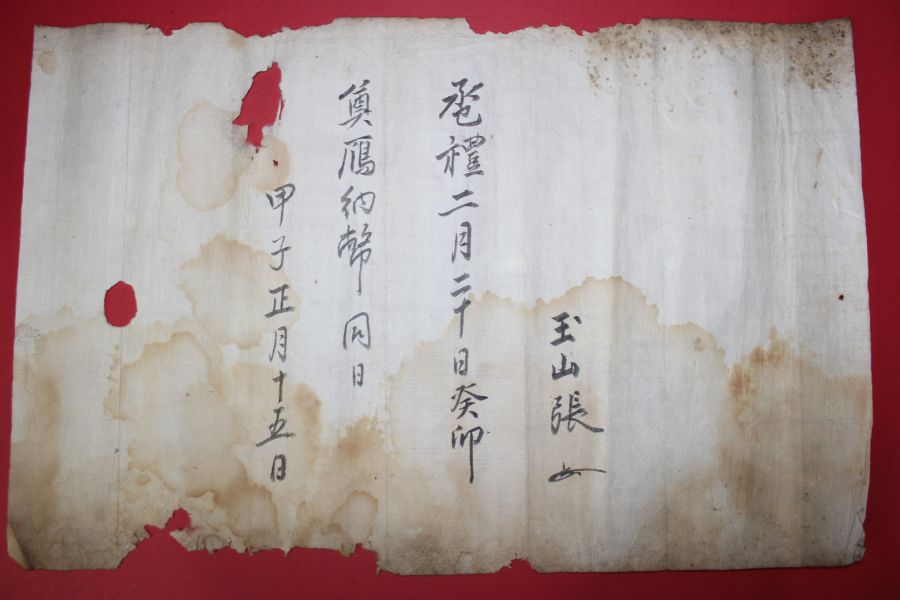 玉山張 女
巹禮二月二十日癸卯
奠鴈納幣同日
甲子正月十五日